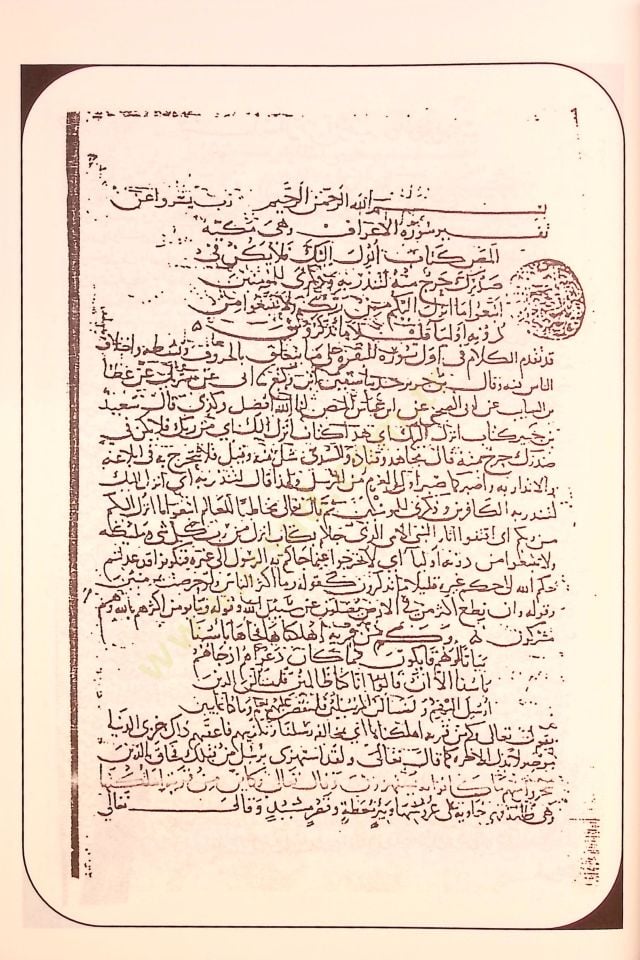 بسم الله الرحمن الرحيم رب يسر واعن
تفسير سورة الاعراف وهى مكيه
المص كتاب انزل اليك فلا يكن فى
صدرك حرج منه لتنذر به وذكرى للمومنين
اتبعوا ما انزل اليكم من ربكم ولا تتبعوا من
دونه اوليا قليلا ما تذكرون
قد تقدم الكلام فى اول سورة البقره على ما يتعلق بالحروف وبسطه واختلاف
الناس فيه وقال بن جرير حدثنا سفين بن وكيع ابى عن شريك عن عطا
بن السايب عن ابى الضحى عن ابن عباس المص انا الله افصل وكذى قال سعيد
بن جبير كتاب انزل اليك اى هذا كتاب انزل اليك اى من ربك فلا يكن فى
صدرك حرج منه قال مجاهد وقتاده والسدى شك منه وقيل لا تتحرج به فى ابلاغه
والانذار به واصبر كما صبر اولو العزم من الرسل ولهذا قال لتنذر به اى انزل اليك
لتنذر به الكافرين وذكرى للمومنين ثم قال تعالى مخاطبا للعالم اتبعوا ما انزل اليكم
من ربكم اى اقتفوا اثار النبى الامى الذى جاكم بكتاب انزل من رب كل شى ومليكه
ولا تتبعوا من دونه اوليا اى لا تخرجوا عما جاكم به الرسول الى غيره فتكونوا قد عدلتم
عن حكم الله الى حكم غيره قليلا ما تذكرون كقوله وما اكثر الناس ولو حرصت بمومنين
وقوله وان تطع اكثر من فى الارض يضلوك عن سبيل الله وقوله وما يومن اكثرهم بالله الا وهم
مشركون وكم من قريه اهلكناها فجاها باسنا
بياتا او هم قايلون فما كان دعواهم اذ جاهم
باسنا الا ان قالوا انا كنا ظالمين فلنسئلن الذين
ارسل اليهم ولنسئلن المرسلين فلنقصن عليهم بعلم وما كنا غايبين
يقول تعالى وكم من قريه اهلكناها اى بمخالفه رسلنا وتكذيبهم فاعقبهم ذلك خزى الدنيا
موصولا بذل الاخره كما قال تعالى ولقد استهزى برسل من قبلك فحاق بالذين
سخروا منهم ما كانوا به يستهزون وقال تعالى فكاين من قريه اهلكناها
وهى ظالمه فهى خاويه على عروشها وبير معطلة وقصر مشيد وقال تعالى